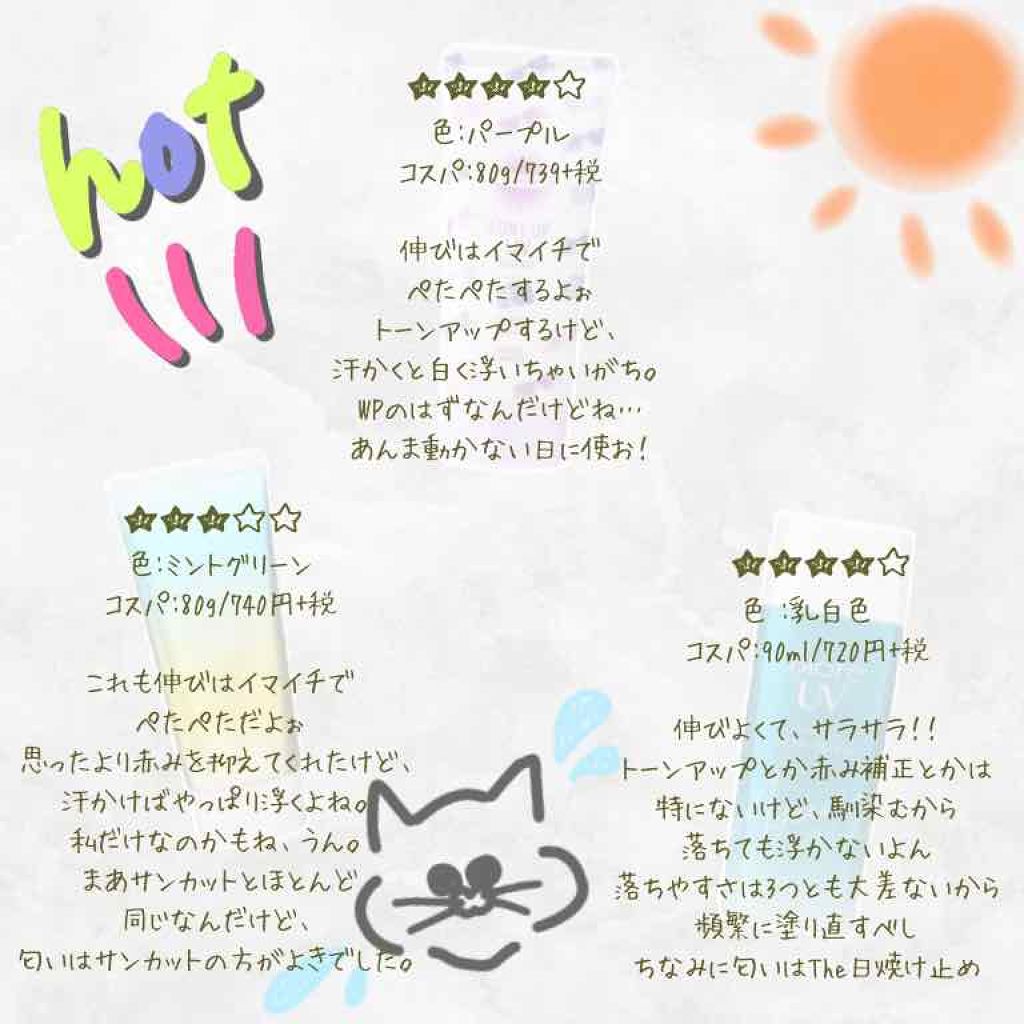 hot
★★★★☆
色:パープル
コスパ:80g/739+税
伸びはイマイチで
ぺたぺたするよぉ
トーンアップするけど、
汗かくと白く浮いちゃいがち。
WPのはずなんだけどね…
あんま動かない日に使お!
★★★☆☆
色:ミントグリーン
コスパ:80g/740円+税
これも伸びはイマイチで
ぺたぺただよぉ
思ったより赤みを抑えてくれたけど、
汗かけばやっぱり浮くよね。
私だけなのかもね、うん。
まあサンカットとほとんど
同じなんだけど、
匂いはサンカットの方がよきでした。
★★★★☆
色:乳白色
コスパ:90ml/720円+税
UV
伸びよくて、サラサラ!!
トーンアップとか赤み補正とかは
特にないけど、馴染むから
落ちても浮かないよん
落ちやすさは3つとも大差ないから
頻繁に塗り直すべし
ちなみに匂いはThe日焼け止め